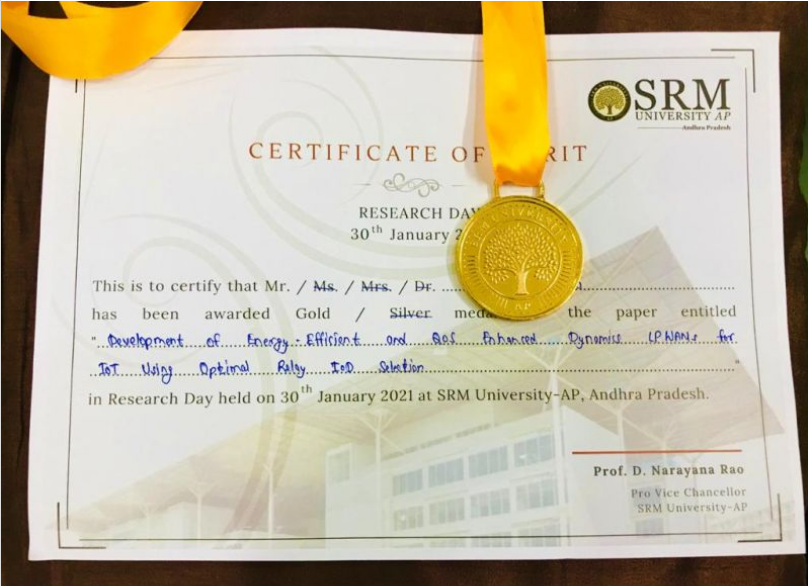 SRM
UNIVERSITY AP
Andhra Pradesh
CERTIFICATE OF RIT
RESEARCH DAY
30th January 2
SRM UNIVERSITY
AP
This is to certify that Mr. / Ms. / Mrs. / Dr. ..........
has been awarded Gold / Silver meda the paper entitled
"Development of Energy-Efficient and QoS Enhanced Dynamic LPWANs for
IoT Using Optimal Relay IoD Selection"
in Research Day held on 30th January 2021 at SRM University-AP, Andhra Pradesh.
Prof. D. Narayana Rao
Pro Vice Chancellor
SRM University-AP